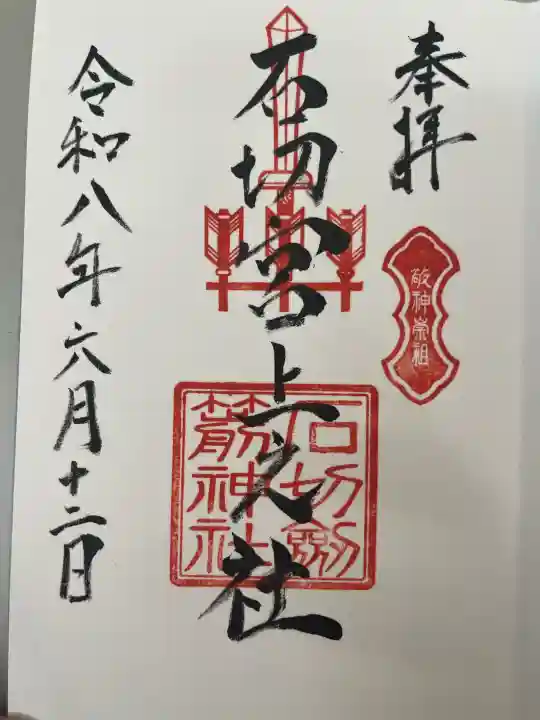 奉拝
敬神崇祖
石切宮上之社
石切劔
箭神社
令和八年六月十二日